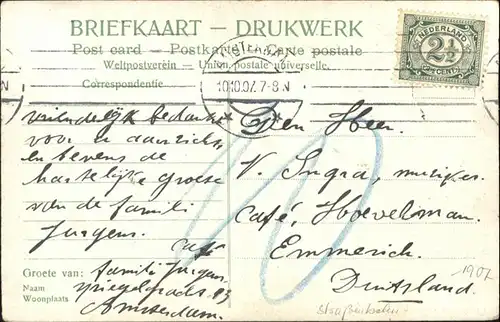 BRIEFKAART — DRUKWERK
Post card — Postkarte — Carte postale
Weltpostverein — Union postale universelle.
Correspondentie
NEDERLAND
2½
CENT
10.10.07. 7-8 N
vriendelijk bedankt
voor u aanzicht
en tevens de
hartelijke groete
van de famili
Jurgens.
café
Groete van: famili Jurgens
Naam Spiegelgracht 13
Woonplaats Amsterdam.
Den Heer.
V. Ingra, muziker
café, Hoevelman.
Emmerich.
Duitsland.
10
1907